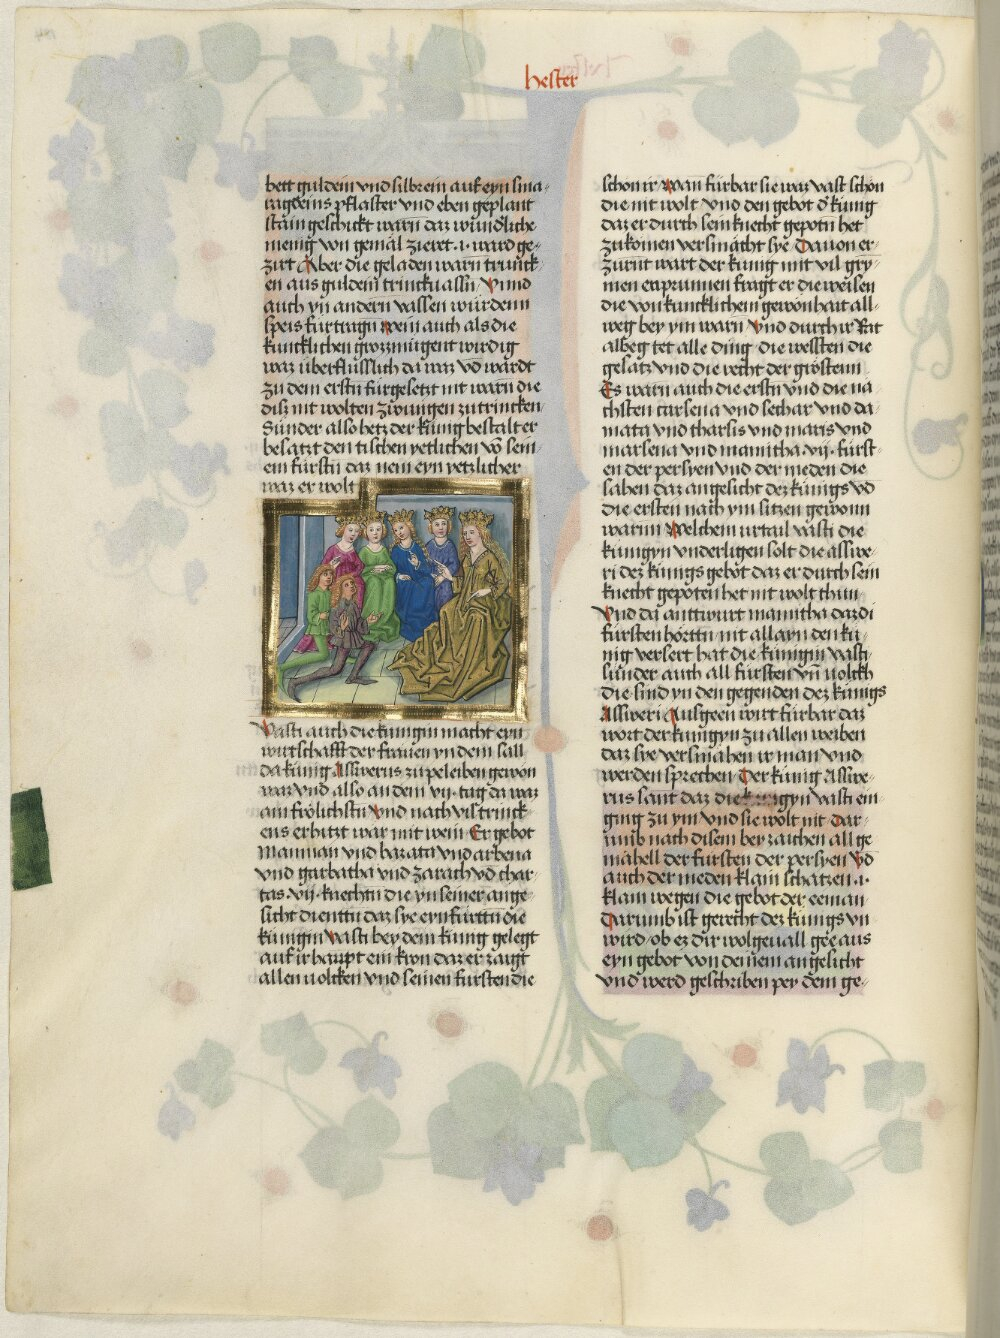 hester
bett guldein vnd silbrein auf eyn sma-
ragdeins pflaster vnd eben geplant
stain geschickt warn daz wundliche
menig von gemäl zieret .1. ward ge-
zirt Aber die geladen warn trunck-
en aus guldem trinckuassn Vnnd
auch yn andern vassen wurdenn
speis furtragn wein auch als die
kuncklichen groszmugent wirdig
waz vberflusslich da waz vō wardt
zu dem erstn furgesetzt nit warn die
disz nit wolten zwingen zutrincken
Sunder also hetz der kung bestalt er
besatzt den tischen yetlichen vō sein-
em furstn daz nem eyn yetzlicher
waz er wolt
Vasti auch die kungin macht eyn
wirtschafft der frauen yn dem sall
da kunig Asswerus zu peleiben gewon
waz vnd also an dem vij. tag da waz
am frölichstn vnd nach vil trinck-
ens erhitzt war mit wein Er gebot
Mauman vnd bazata vnd arbena
vnd garbatha vnd zarath vō char-
tas .vij. knechtn die yn seiner ange-
sicht dientn daz sye eynfurttn die
kungin vasti bey dem kung gelegt
auf ir haupt ein kron daz er zaigt
allen uolcken vnd seinen fursten die
schon ir Wan furbar sie waz vast schön
die nit wolt vnd den gebot dez kung
daz er durch sein knecht gepotn het
zukomen versmächt sye Dauon er-
zurnt wart der kunig mit vil gry-
men enprunnen fragt er die weisen
die von kuncklichem gewonhait all-
weg bey ym warn Vnd durch ir Rat
albeg tet alle ding die wessten die
gesatz vnd die recht der gröstenn
Es warn auch die erstn vnd die na
chsten carsena vnd sethar vnd da-
mata vnd tharsis vnd maris vnd
marsena vnd mamitha .vij. furst-
en der persyen vnd der meden die
sahen daz angesicht dez kunigs vō
die ersten nach ym sitzen gewonn
warnn Welchem urtail vasti die
kungyn vnderligen solt die asswe-
ri dez kunigs gebot daz er durch sein
knecht gepoten het nit wolt thun
Vnd da anttwurt mamitha daz di
fursten hörttn nit allayn den ku-
nig versert hat die kunigin vasti
sunder auch all fursten vn̄ uolckh
die sind yn den gegenden dez kunigs
Assweri Ausgeen wirt furbar daz
wort der kunigyn zu allen weiben
daz sye versmahen ir man vnd
werden sprechen Der kunig Asswe-
rus hait daz die gyn vasti ein
ging zu ym vnd sie wolt nit Dar-
umb nach disem beyzaichen all ge
mahell der fursten der persyen vō
auch der meden klain schatzen .1.
klain wegen die gebot der eeman
Darumb ist gerecht dez kunigs vn
wird/ob ez dir wolgeuall gee aus
eyn gebot von deinem angesicht
vnd werd geschriben pey dem ge-